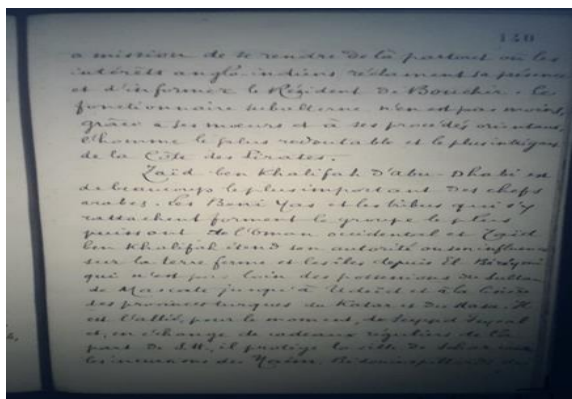 130
a mission de se rendre de là partout où les
intérêts anglo-indiens réclament sa présence
et d'informer le Résident de Bouchir. Ce
fonctionnaire subalterne n'en est pas moins,
grâce à ses mœurs et à ses procédés orientaux,
l'homme le plus redoutable et le plus
de la Côte des Pirates.
Zaïd ben Khalifah d'Abu-Dhabi est
de beaucoup le plus important des chefs
arabes. Les Beni Yas et les tribus qui s'y
rattachent forment le groupe le plus
puissant de l'Oman occidental et Zaïd
ben Khalifah étend son autorité ou son influence
sur la terre ferme et les îles depuis El
qui n'est pas loin des possessions du Sultan
de Mascate jusqu'à et à la lisière
des provinces turques de Katar et du Hasa. Il
est l'allié, pour le moment, de Seyyid Feysal
et, en échange de cadeaux réguliers de la
part de S.H., il protège la ville de Sohar
les incursions des Bédouins